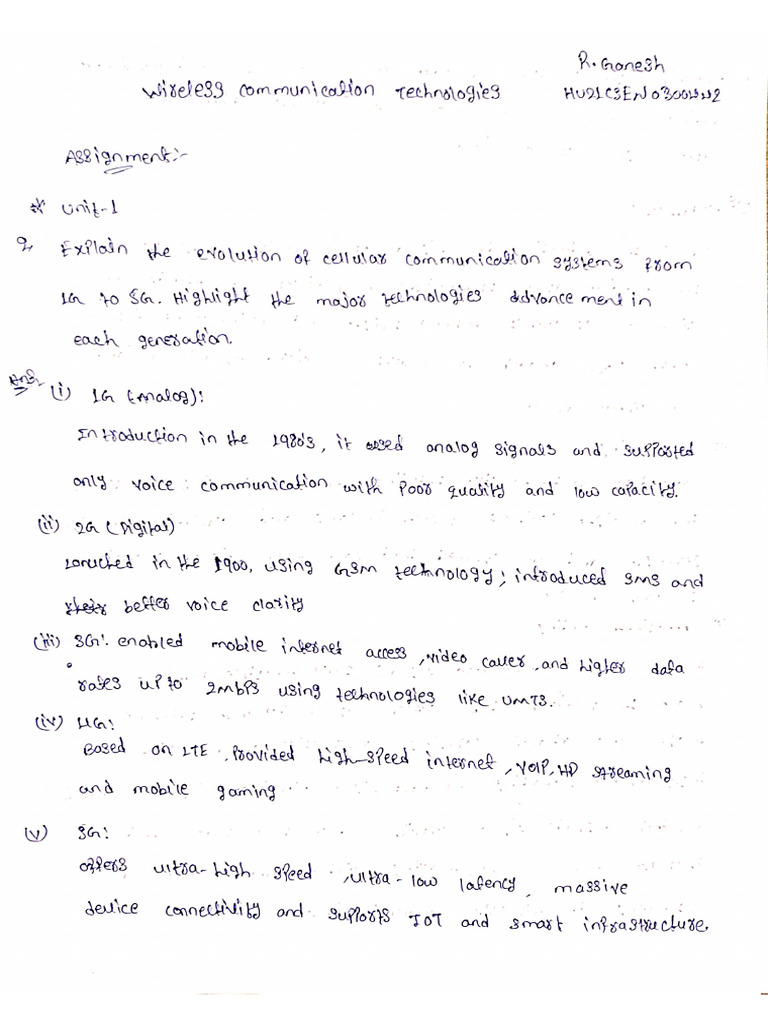 R. Ganesh
Wireless communication Technologies HU21CSEN0300442
Assignment:-
* Unit-1
Q, Explain the evolution of cellular communication systems from
1G to 5G. Highlight the major technologies advancement in
each generation.
Ans (i) 1G (Analog):
Introduction in the 1980's, it used analog signals and supported
only voice communication with poor quality and low capacity.
(ii) 2G (Digital)
in the 1900, using GSM technology; introduced SMS and
better voice clarity
(iii) 3G: enabled mobile internet access, video caller, and higher data
rates up to 2mbps using technologies like UMTS.
(iv) 4G:
Based on LTE, Provided high-speed internet, VOIP, HD streaming
and mobile gaming
(v) 5G:
offers ultra-high speed, ultra-low latency, massive
device connectivity and supports IOT and smart infrastructure.